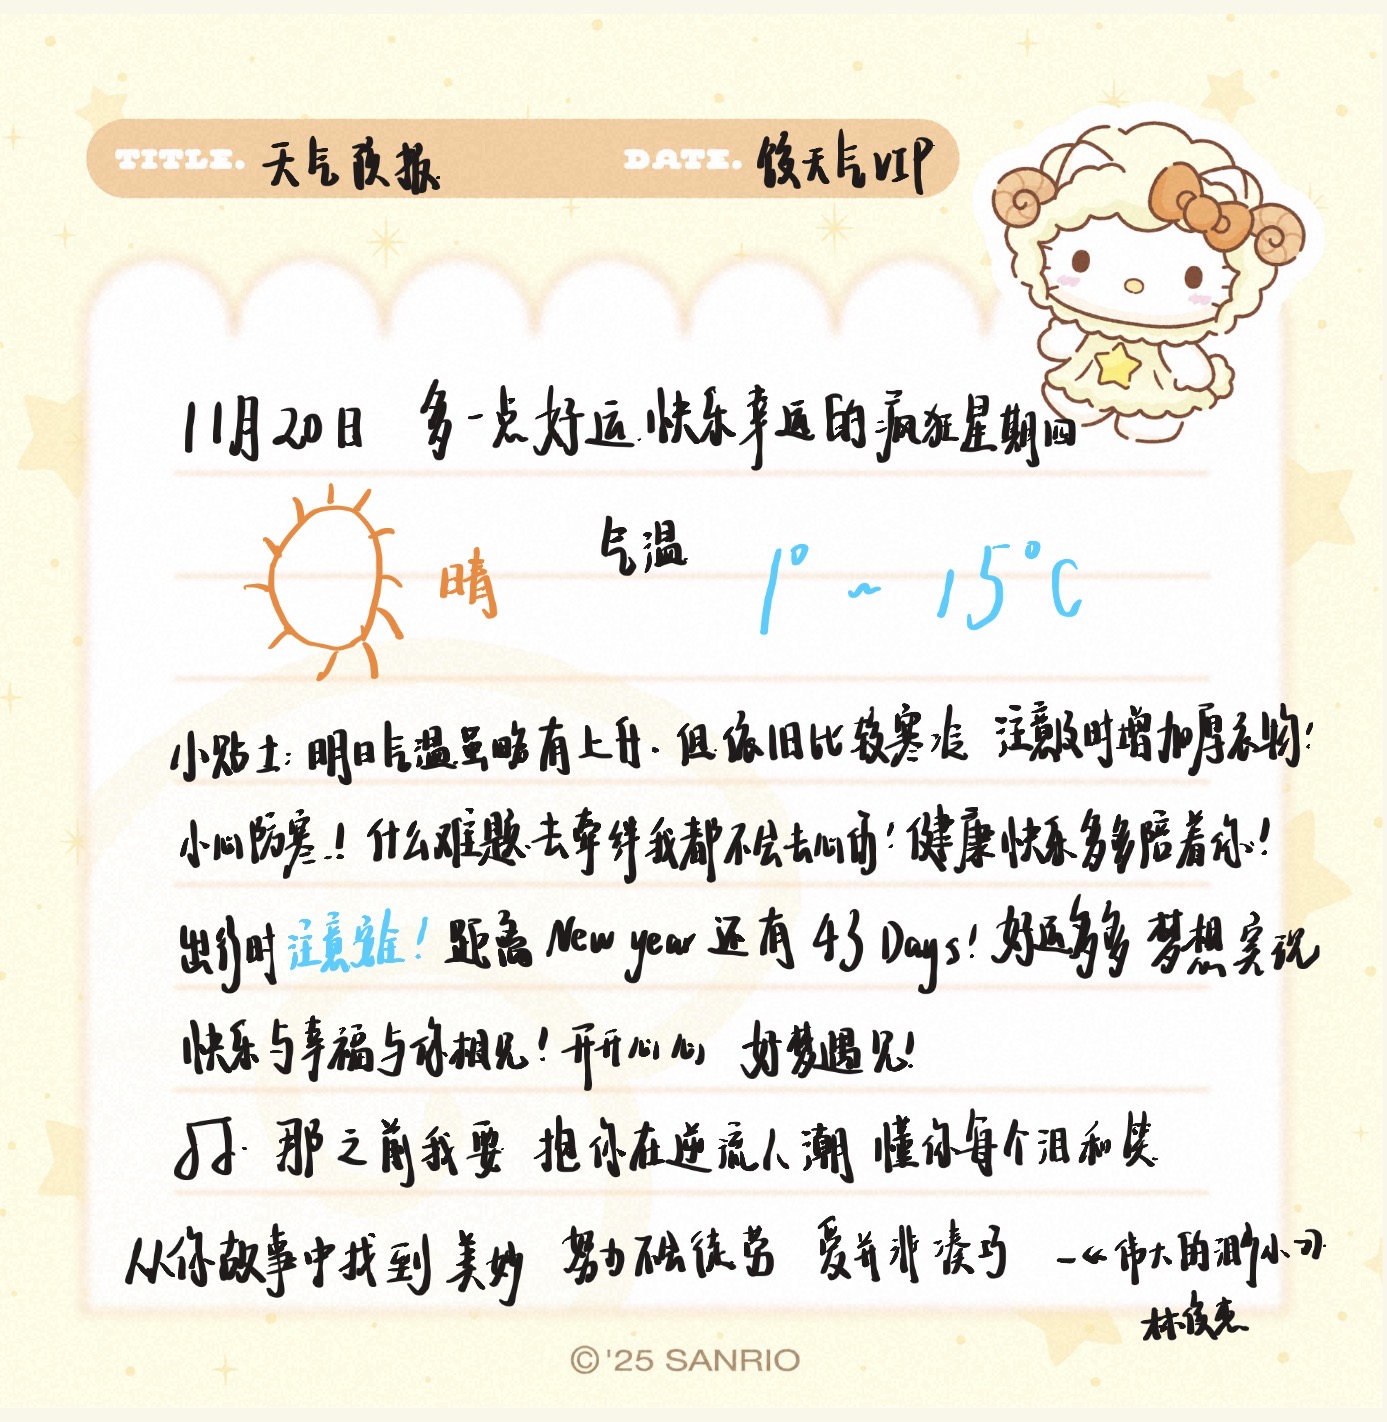 TITLE. 天气预报 DATE. 饺天气VIP
11月20日 多一点好运 快乐幸运的疯狂星期四
晴 气温 1°~15°C
小贴士:明日气温虽略有上升.但依旧比较寒冷 注意及时增加厚衣物!
小心防寒!什么难题去牵绊我都不会去心伤!健康快乐多多陪着你!
出行时注意安全!距离New year还有43Days!好运多多 梦想实现
快乐与幸福与你相见!开开心心 好梦遇见!
那之前我要 抱你在逆流人潮 懂你每个泪和笑
从你故事中找到美妙 努力不会徒劳 爱并非凑巧 —《伟大的渺小》
林俊杰
©'25 SANRIO